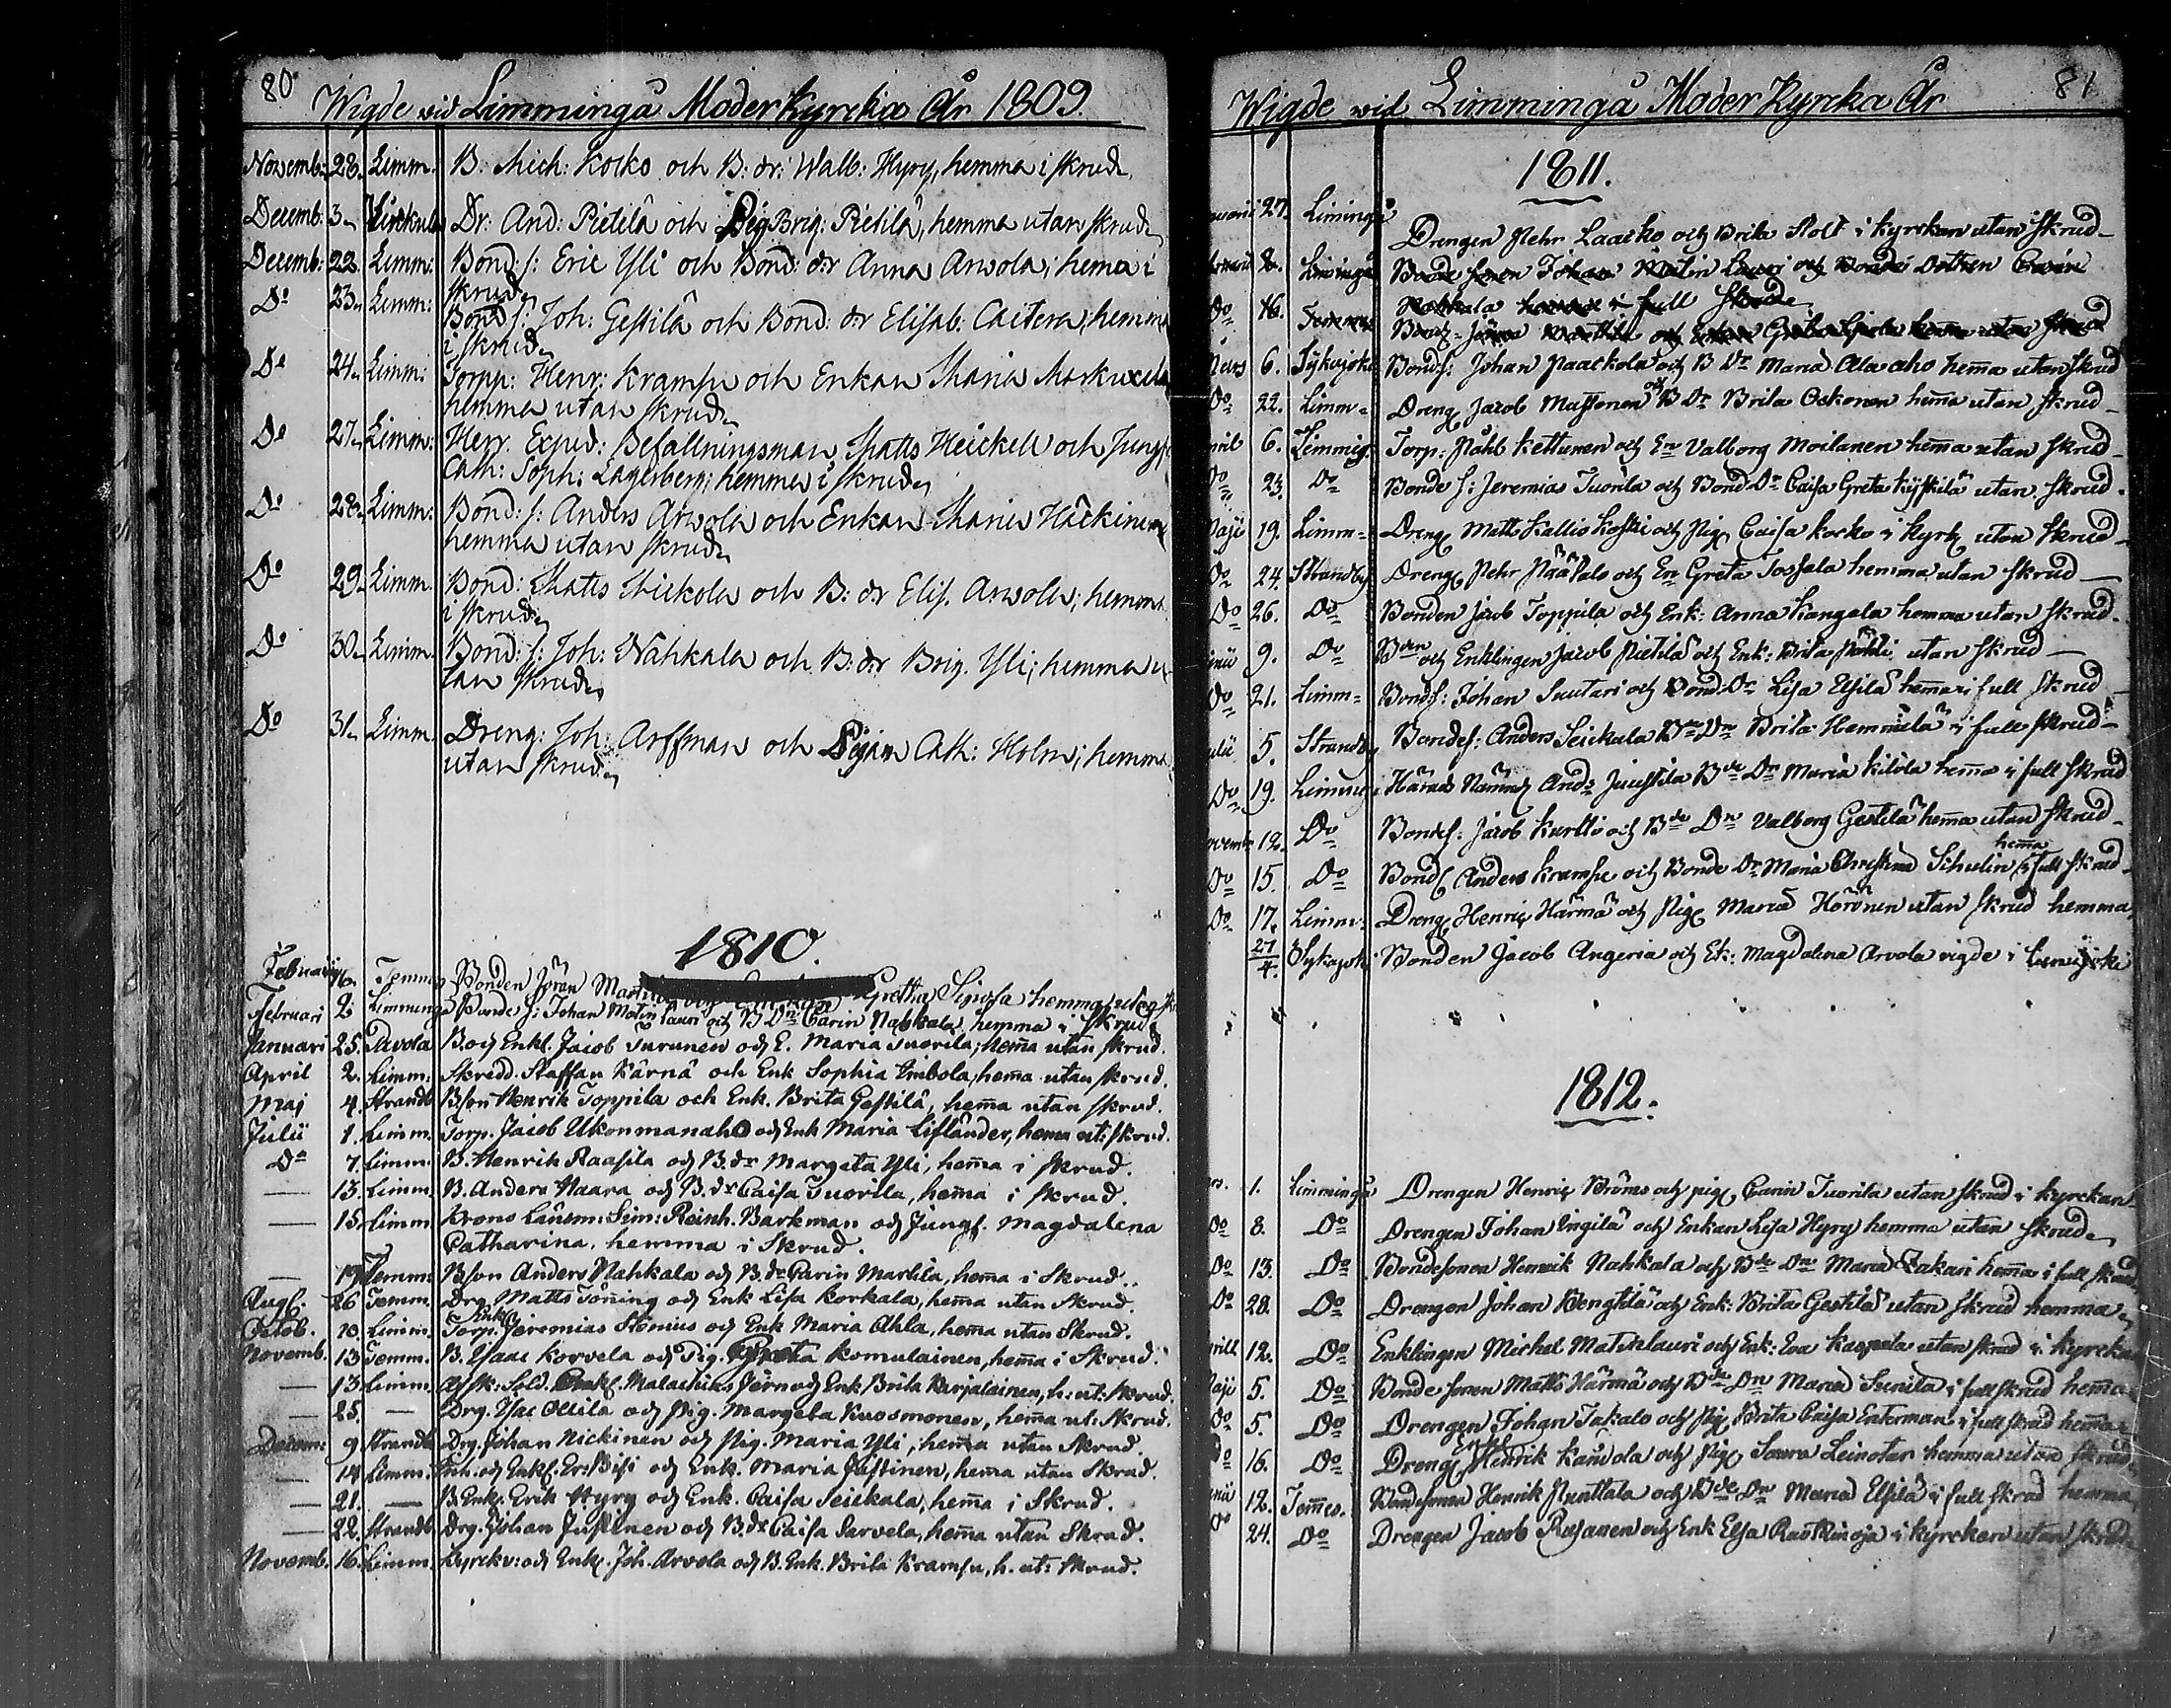 80
Wigde vid Limmingå Moder Kyrcka År 1809.
Novemb: 28. Limm. B: Mich: Kocko och B: dr: Walb: Hyry, hemma i skrud.
Decemb: 3. Dr: And: Pietilä och Pig Brig: Pietilä, hemma utan skrud.
Decemb: 22. Limm: Bond: s: Eric Yli och Bond: dr Anna Arvola, hema i
skrud.
Do 23. Limm: Bond s: Joh: Gestilä och Bond: dr Elisab: Caitera, hemma
i skrud.
Do 24. Limm: Torpp: Henr: Krampu och Enkan Maria
hemma utan skrud.
Do 27. Limm: Herr Exped: Befallningsman Matts Heickell och Jungfr
Cath: Soph: Lagerberg; hemma i skrud.
Do 28. Limm: Bond: s: Anders Arvola och Enkan Maria Häckinen
hemma utan skrud.
Do 29. Limm. Bond: Matts Mickola och B: dr Elis. Arvola; hemma
i skrud.
Do 30. Limm. Bond: s: Joh: Nahkala och B: dr Brig. Yli; hemma u
tan skrud.
Do 31. Limm. Dreng: Joh: Arffman och Pigan Cath: Holm; hemma
utan skrud.
1810.
Februarii 16. Temmes Bonden Jöran Gretha Sipola hemma utan
Februari 2 Limmingå Bonde s: Johan Matin Lauri och B Dr Carin Nahkala hemma i skrud
Januari 25. Pavola B. och Enkl. Jacob Turunen och E. Maria Tuorila, hema utan skrud.
April 2. Limm: Skredd. Staffan Kärnä och Enk Sophia Imbola, hema utan skrud.
Maj 4. Strandb Bson Henrik Toppila och Enk. Brita Gestilä, hema utan skrud.
Julii 1. Limm. Torp. Jacob Ukonmanaho och Enk Maria Lifländer, hema ut: skrud.
Do 7. Limm. B. Henrik Raasila och B. dr Margeta Yli, hema i skrud.
— 13. Limm. B. Anders Haara och B. dr Caisa Tuorila, hema i skrud.
— 15. Limm Krono Länsm: Sim: Reinh. Barkman och Jungf. Magdalena
Catharina, hemma i Skrud.
— 19 Temm: Bson Anders Nahkala och B. dr Carin Martila, hema i Skrud.
Aug. 26 Temm. Drg. Matts Töning och Enk Lisa Korkala, hema utan Skrud.
Enkl
Octob. 10. Limm. Torp. Jeremias Stenius och Enk Maria Ahla, hema utan Skrud.
Novemb. 13 Temm. B. Isaac Korvela och Pig. Greta Komulainen, hema i Skrud.
— 13 Limm. Afsk: Sold. Enkl. Malachias Jern och Enk Brita Karjalainen, h: ut: skrud.
— 25. — Drg. Isac Ollila och Pig. Margeta Kuosmonen, hema ut: Skrud.
Decem: 9. Strandb Drg. Johan Nickinen och Pig. Maria Yli, hema utan Skrud.
— 14 Limm. Inh. och Enkl. Er: Bisi och Enk. Maria Justinen, hema utan Skrud.
— 21. — B. Enkl. Erik Hyry och Enk. Caisa Seickala, hema i Skrud.
— 22. Strandb Drg. Johan Justinen och B. dr Caisa Sarvela, hema utan Skrud.
Novemb. 16. Limm. Kyrckv: och Enkl. Joh. Arvola och B. Enk. Brita Krampu, h. ut: skrud.
81
Wigde vid Limmingå Moder Kyrcka År
1811.
27. Limingå Drengen Pehr Laacko och Brita Stolt i Kyrckan utan Skrud
Limingå Bonde Sonen Johan Matin Lauri och Bonde Dottren Carin
Nahkala hemma i full Skrud
Do 16. Temmes
Mars 6. Sykajoki Bonds: Johan Paackola och B Dr Maria Ala aho hema utan Skrud
Do 22. Limm= Dreng Jacob Mustonen och B Dr Brita Ockonen hema utan Skrud
6. Limmig. Torp: Påhl Kettunen och En Valborg Moilanen hema utan Skrud
Do 23. Do Bonde s: Jeremias Tuorila och Bond Dr Caisa Greta Kyskilä utan Skrud.
Maji 19. Limm= Dreng Matts Kallio Koski och Pig Caisa Kocko i Kyrk utan Skrud
Do 24. Strandby Dreng Pehr Pääskö och En Greta Tossala hemma utan Skrud
Do 26. Do Bonden Jacob Toppila och Enk: Anna Kangala hemma utan Skrud.
9. Do Bden och Enklingen Jacob Pietilä och Enk: Brita utan Skrud
Do 21. Limm= Bonds: Johan Suutari och Bond Dr Lisa Elsilä hemma i full Skrud
5. Strandby Bondes: Anders Seickala Bde Dr Brita Hemmilä i full Skrud
Do 19. Liming Härads Nämnd And: Juustila Bde Dr Maria Kilola hema i full Skrud
12. Do Bondes: Jacob Kurtti och Bde Dr Valborg Gestilä hema utan Skrud
hema
Do 15. Do Bonds Anders Krampu och Bonde Dr Maria Christina Schulin i full Skrud
Do 17. Limm= Dreng Henric Härmä och Pig Maria Hörönen utan Skrud hemma
27/4. Sykajoki Bonden Jacob Angeria och Ek: Magdalena Arvola vigde i Lumijoki
1812.
1. Limmingå Drengen Henric Bröms och pig Carin Tuorila utan Skrud i Kyrckan
Do 8. Do Drengen Johan Ingilä och Enkan Lisa Hyry hemma utan Skrud
Do 13. Do Bondesonen Henrik Nahkala och Bde Dr Maria Zakari hema i full Skrud
Do 28. Do Drengen Johan Bengtilä och Enk: Brita Gestilä utan Skrud hemma
12. Do Enklingen Michel Matinlauri och Enk: Eva Kaapala utan Skrud i Kyrcka
Maji 5. Do Bonde sonen Matts Härmä och Bde Dr Maria Sunila i full skrud hema
Do 5. Do Drengen Johan Takalo och Pig Brita Caisa Enterman i full Skrud hema
Enkl
Do 16. Do Dreng Henrik Kandola och Pig Saara Leinoten hemma utan Skrud
12. Temes. Bondesonen Henrik Punttala och Bde Dr Maria Elsilä i full Skrud hemma
Do 24. Do Drengen Jacob Rusanen och Enk Elsa Rautkinoja i Kyrckan utan Skrud